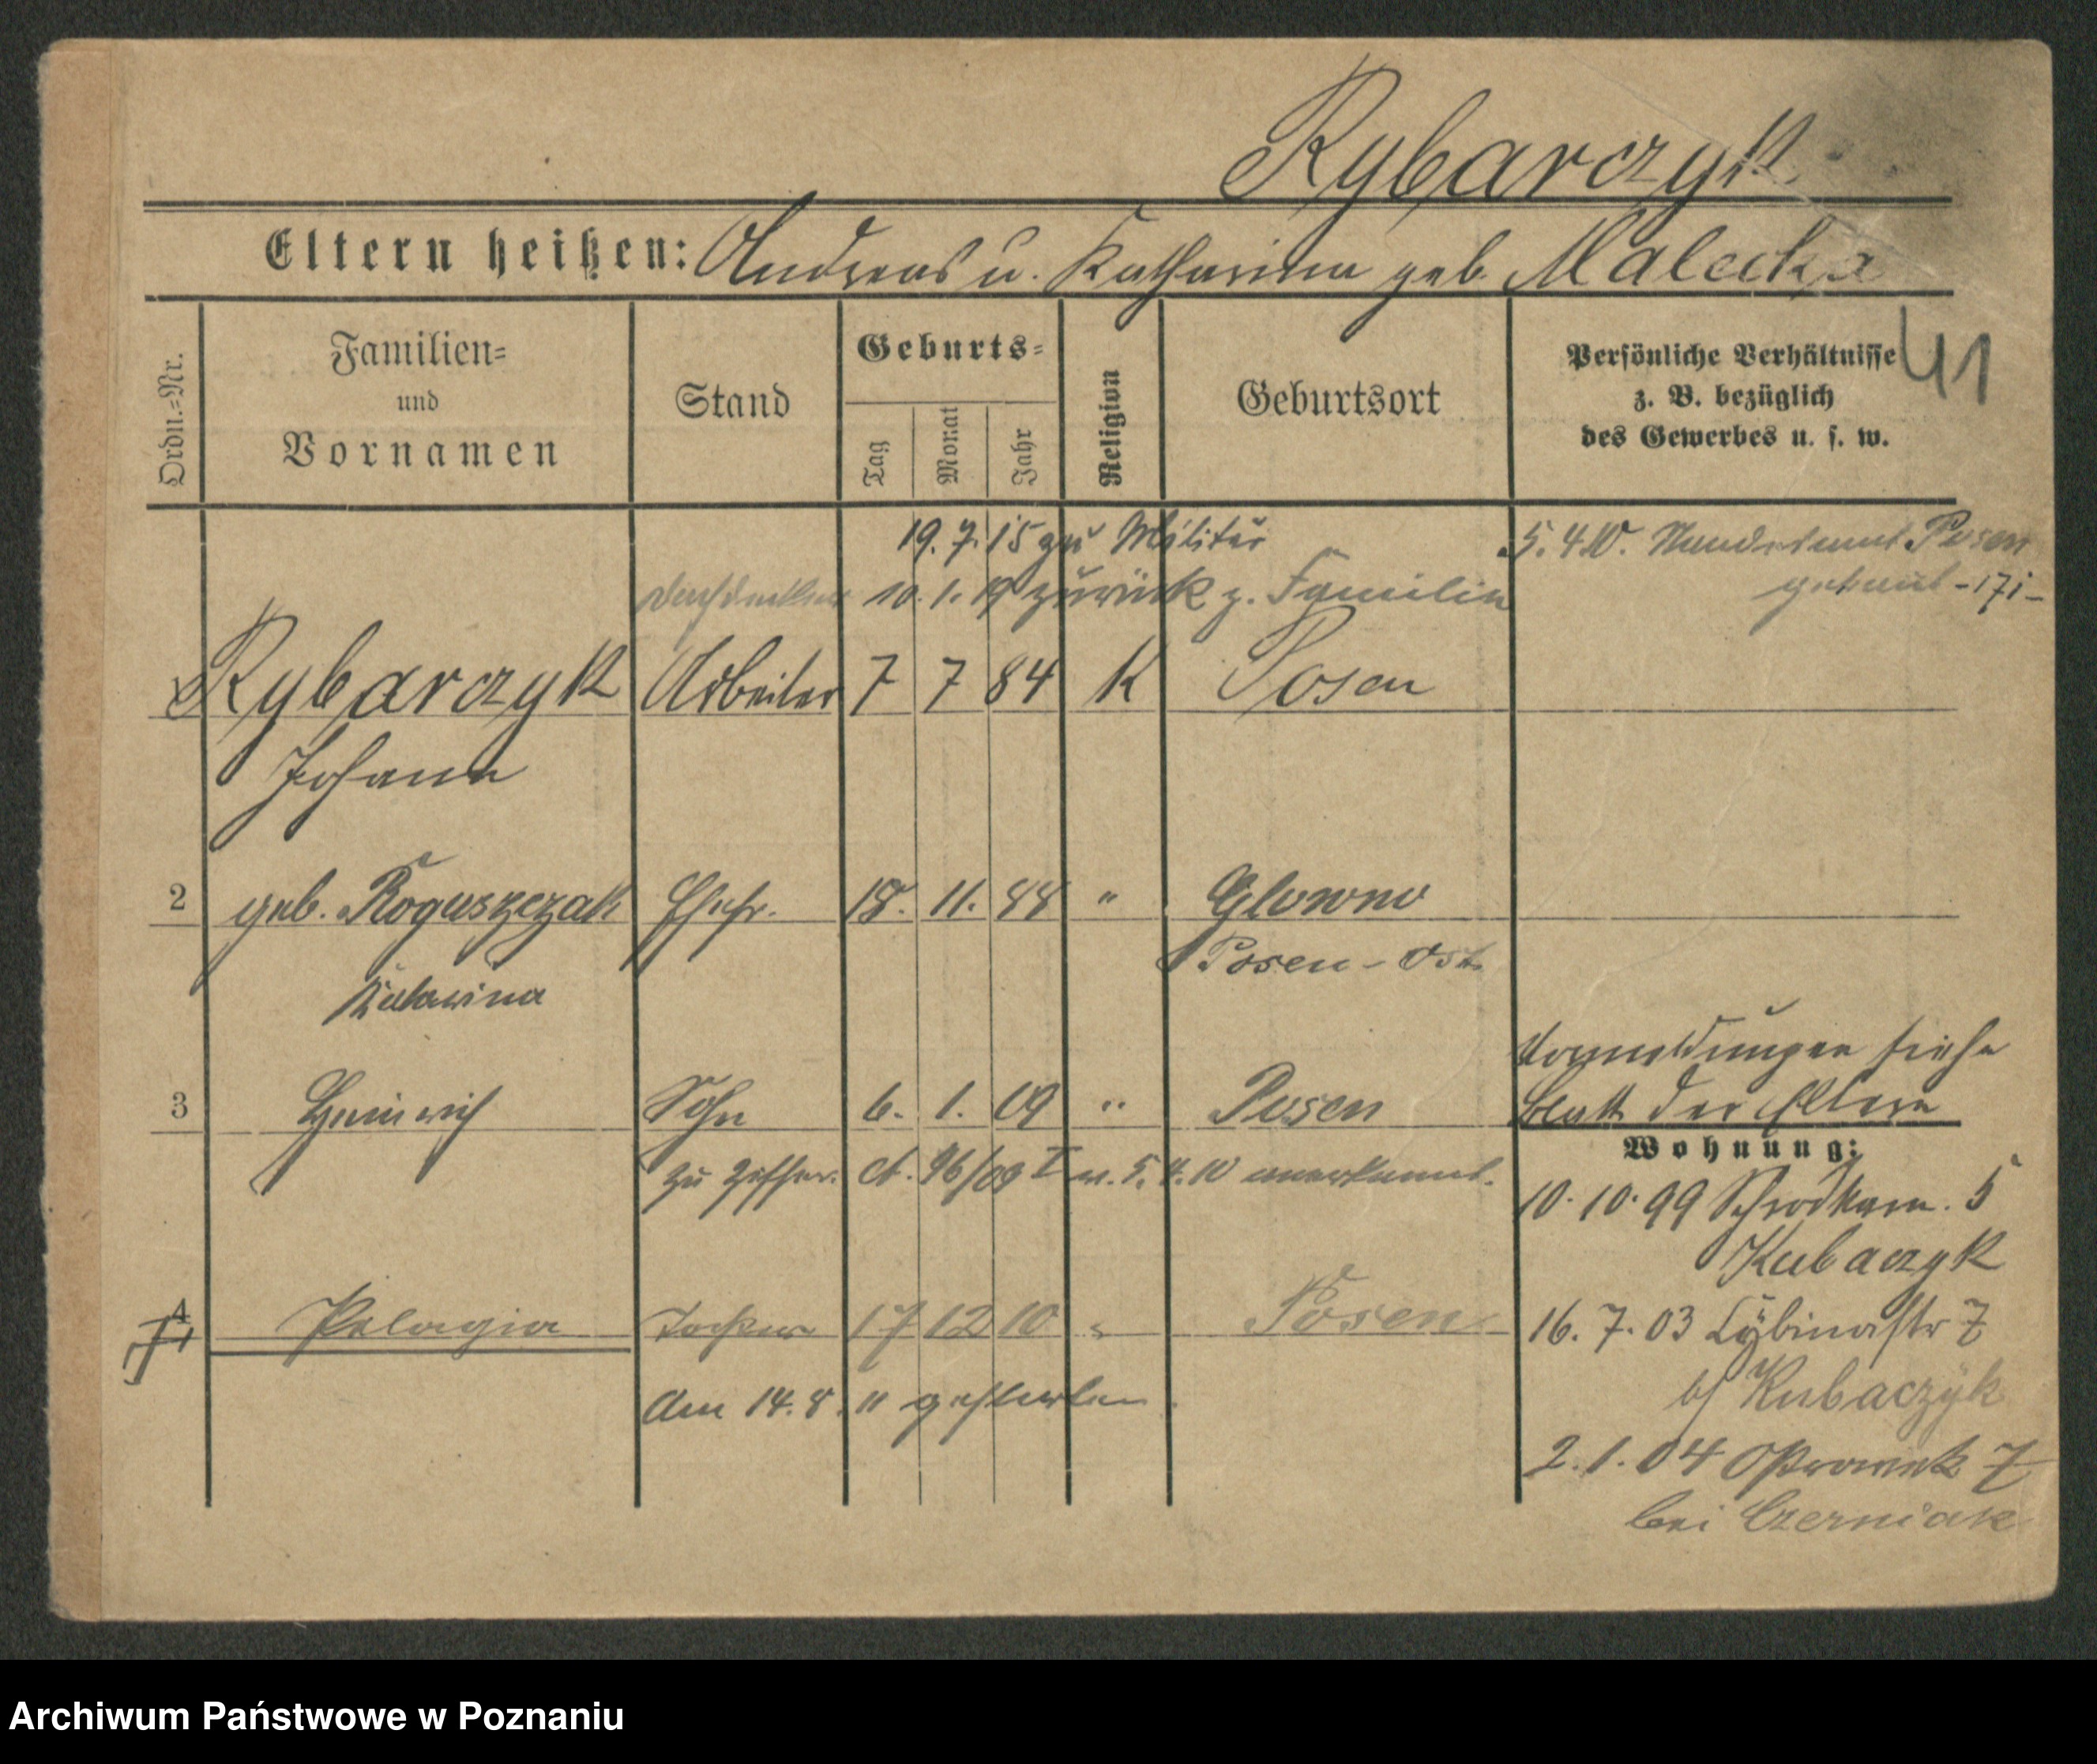 Rybarczyk
Eltern heißen: Andreas u. Katharina geb. Malecka
41
Ordn.-Nr.
Familien-
und
Vornamen
Stand
Geburts-
Tag
Monat
Jahr
Religion
Geburtsort
Persönliche Verhältnisse
z. B. bezüglich
des Gewerbes u. s. w.
19. 7. 15 zu Militär
10. 1. 19 zurück z. Familie
5. 4. 10. Standesamt Posen
getraut
Rybarczyk Arbeiter 7 7 84 K Posen
Johann
2 geb. Roguszczak Ehefr. 18. 11. 88 " Glowno
Posen-Ost
Katarina
3 Heinrich Sohn 6. 1. 09 " Posen
Vormeldungen siehe
Blatt der Eltern
zu Ziffer. A. 96/09 I v. 5. 4. 10 anerkannt.
Wohnung:
10. 10. 99 Schrodkam. 5
Kubaczyk
4 Pelagia Tochter 17 12 10 " Posen
16. 7. 03 Cybinastr 7
b/ Kubaczyk
Am 14. 8. 11 gestorben
2. 1. 04 Ostrowek 7
bei Czerniak
Archiwum Państwowe w Poznaniu